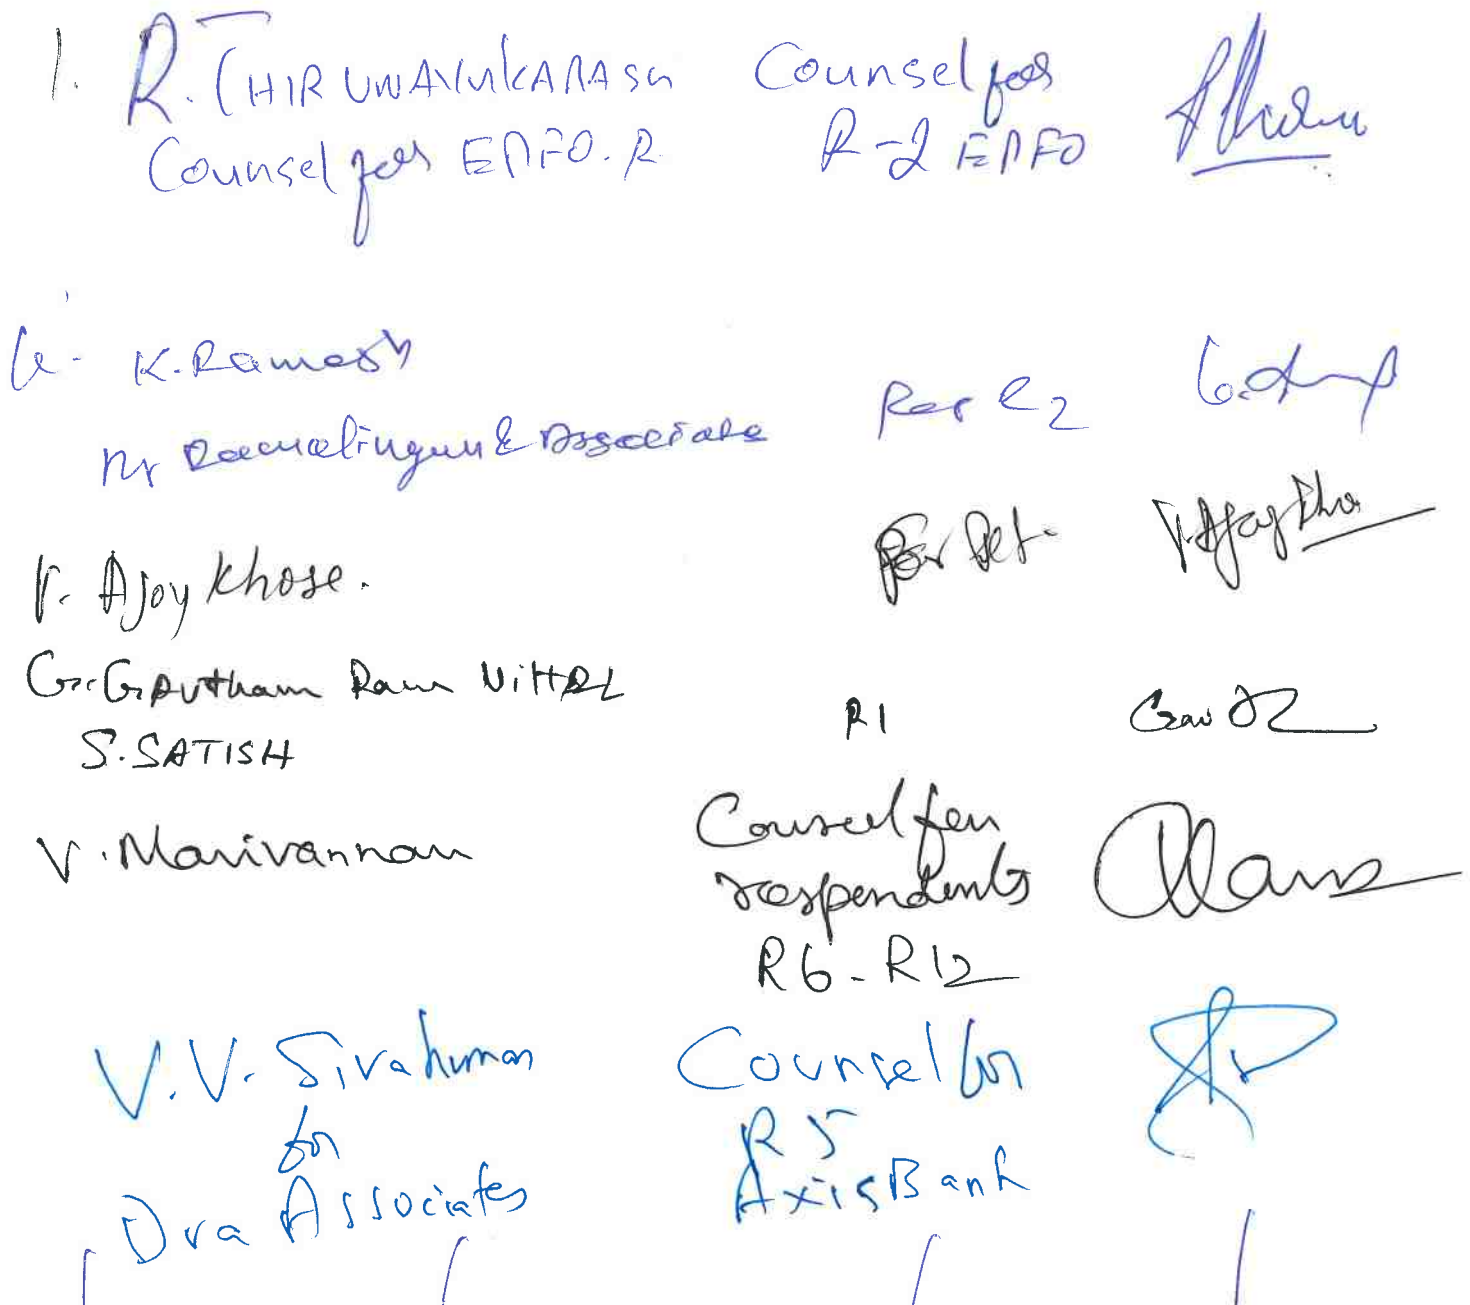 1. R. THIRUNAVUKARASU Counsel for
Counsel for EPFO. R R-2 EPFO
K. Ramesh
Mr Ramalingam & Associate For R2
V. Ajoy Khose. For Pet.
G. Gautham Ram Vittal R1
S. SATISH
V. Manivannan Counsel for
respondents
R6 - R12
V.V. Sivakumar Counsel for
for R5
Dva Associates Axis Bank